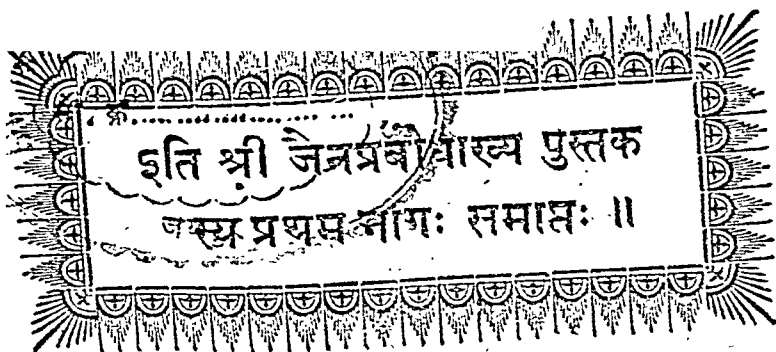 इति श्री जैनप्रबोधाख्य पुस्तक
स्य प्रथम भागः समाप्तः ॥